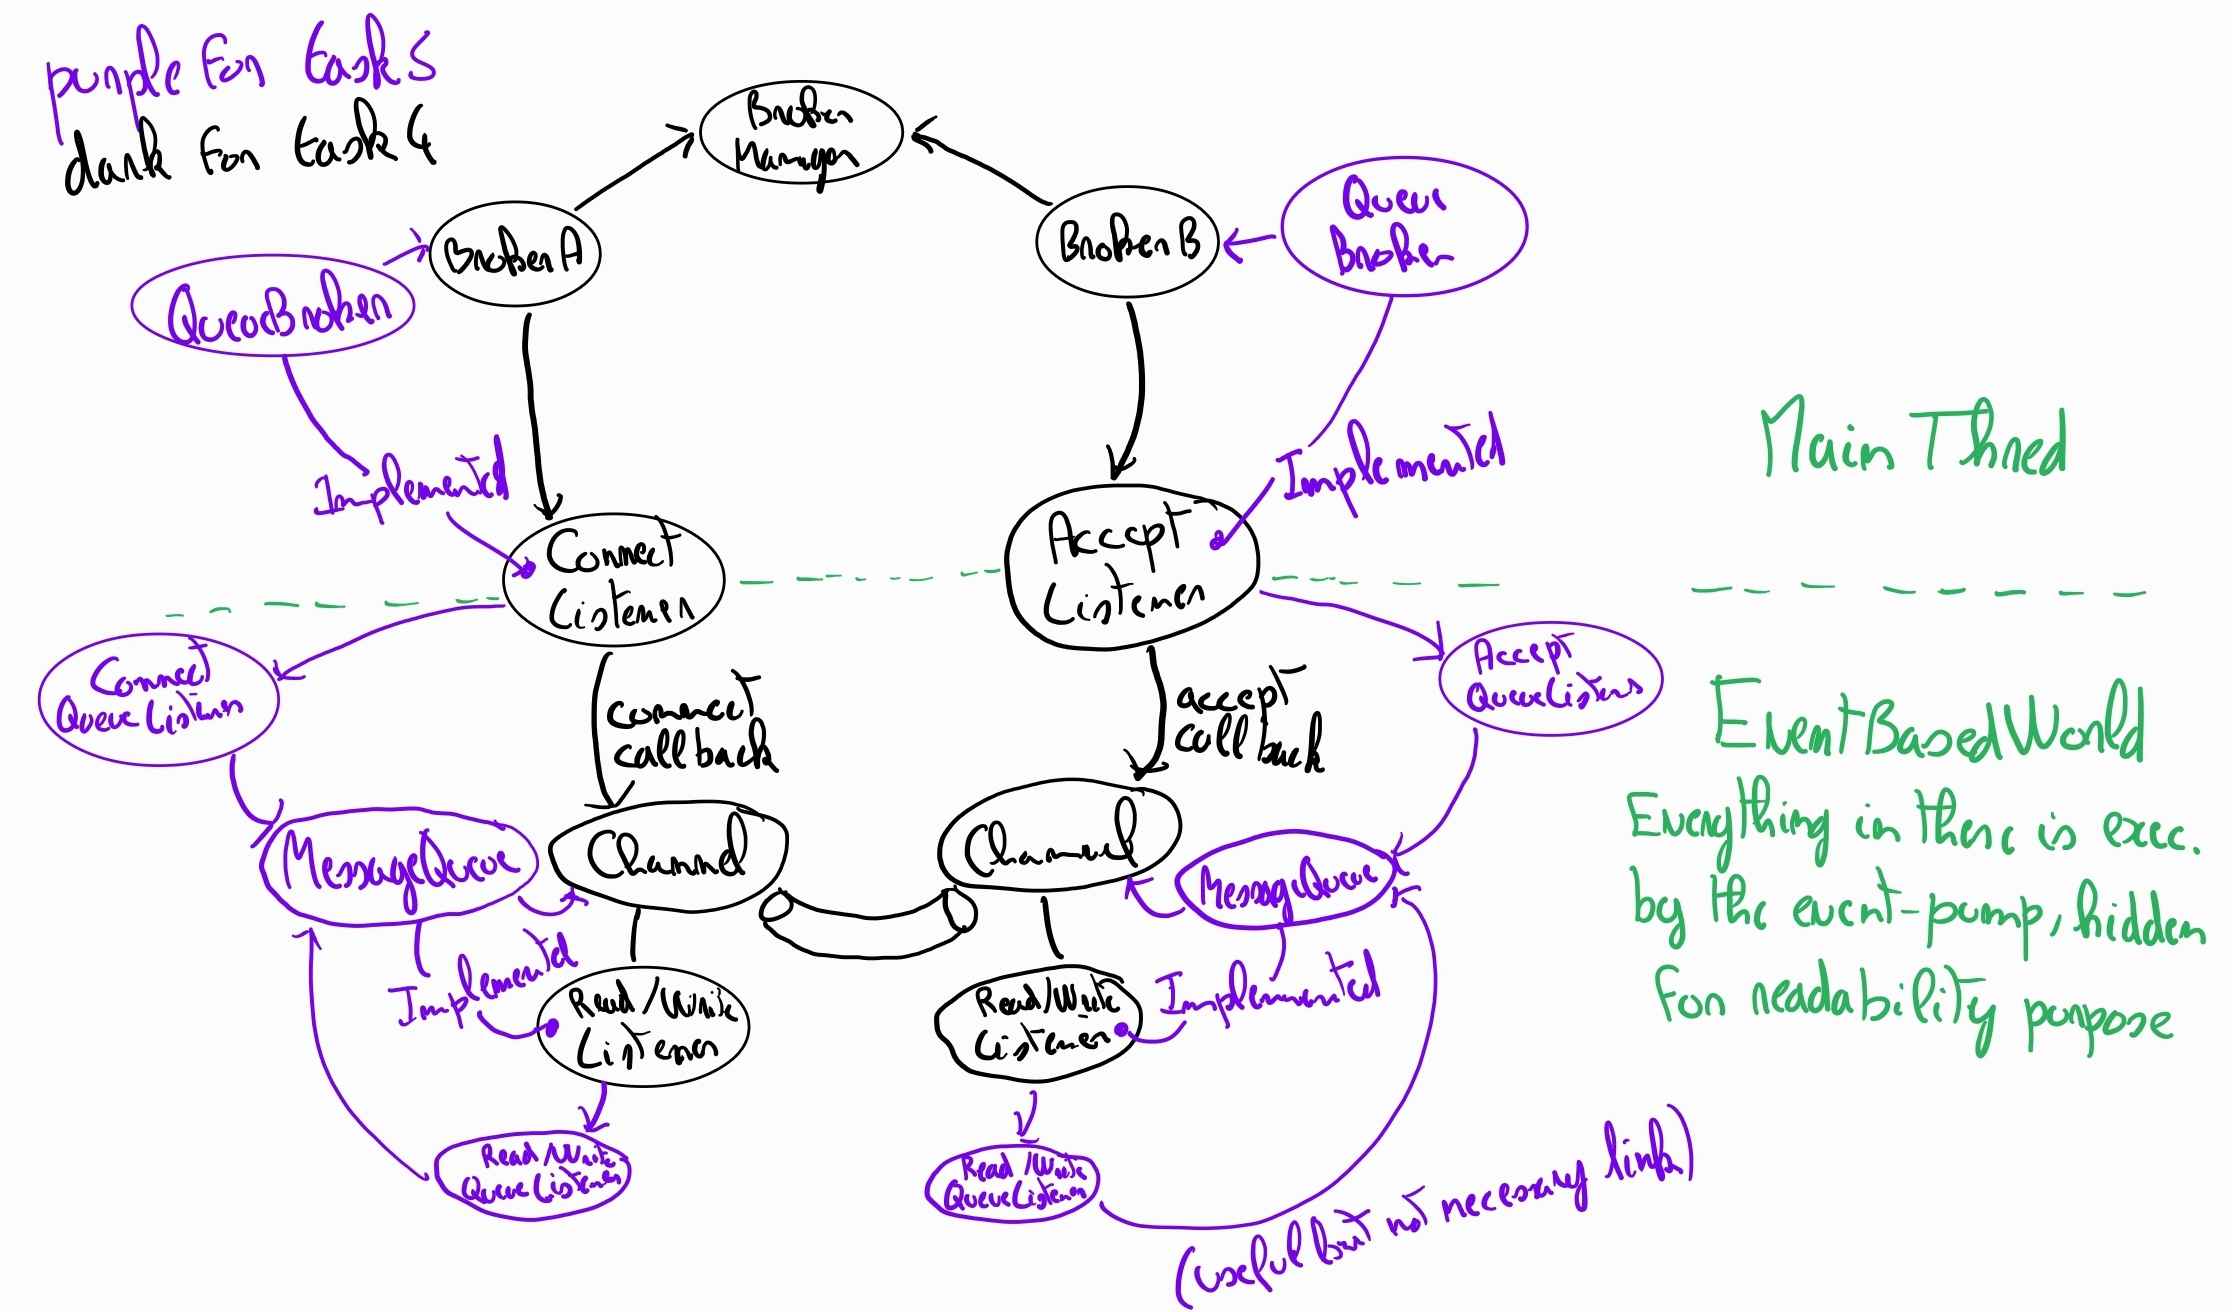 purple for task 5
dark for task 4
Broker
Manager
Broker A
Broker B
Queue
Broker
QueueBroker
Implemented
Implemented
Main Thred
Connect
Listener
Accept
Listener
Connect
QueueListener
connect
callback
accept
callback
Accept
QueueListens
EventBasedWorld
Everything in there is exec.
by the event-pump, hidden
for readability purpose
MessageQueue
Channel
Channel
MessageQueue
Implemented
Read/Write
Listener
Read/Write
Listener
Implemented
Read/Write
QueueListener
Read/Write
QueueListener
(useful but not necessary link)